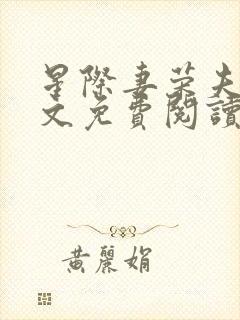 星際妻榮夫
文免費閱讀
黃麗娟